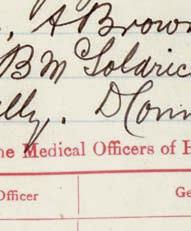 , A Brown
B M Soldric
lly. D Conn
he Medical Officers of H
Officer Ge